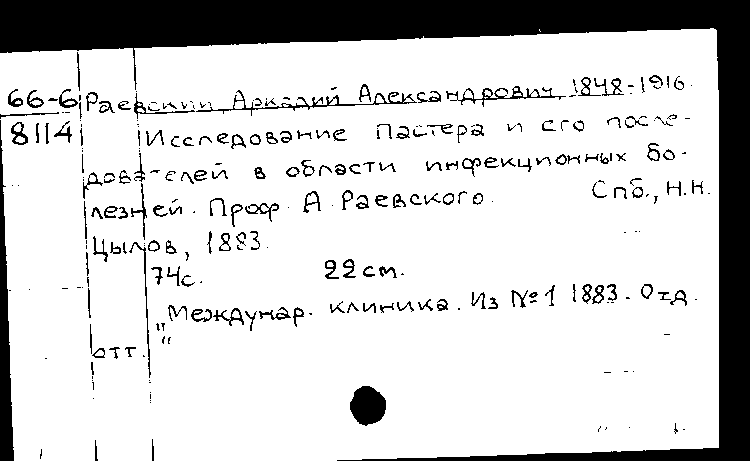 66-6 Раевский, Аркадий Александрович, 1848-1916.
8114 Исследование Пастера и его после-
дователей в области инфекционных бо-
лезней. Проф. А. Раевского. Спб., Н.Н.
Цылов, 1883.
74с. 22 см.
"Междунар. клиника. Из № 1 1883. Отд.
отт."